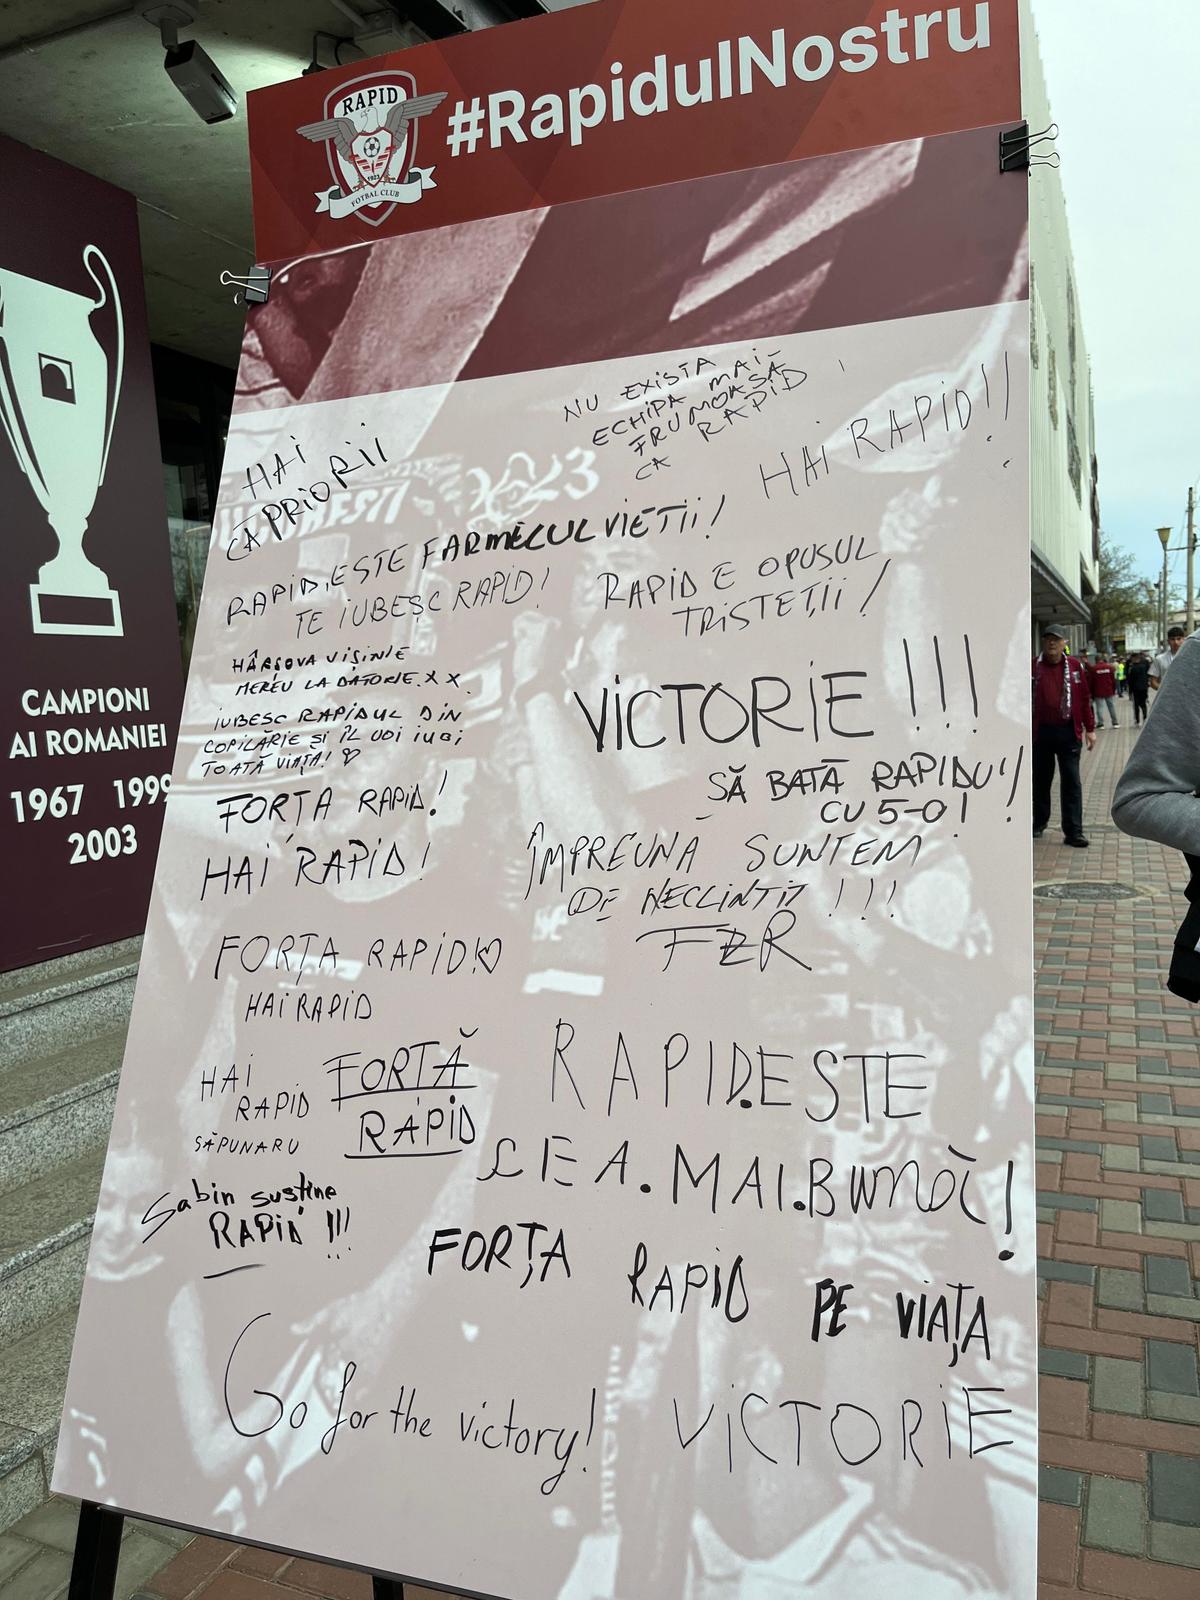 #RapidulNostru
RAPID
1923
FOTBAL CLUB
CAMPIONI
AI ROMANIEI
1967 1999
2003
NU EXISTA
ECHIPA MAI
FRUMOASĂ
CA RAPID
HAI RAPID!!
HAI
CĂPRIORII
BUCUREȘTI 1923
RAPID.ESTE FARMECUL VIETII!
TE IUBESC RAPID!
RAPID E OPUSUL
TRISTEȚII!
HÂRȘOVA VIȘINIE
MEREU LA DATORIE. X X.
VICTORIE !!!
IUBESC RAPIDUL DIN
COPILĂRIE ȘI ÎL VOI IUBI
TOATĂ VIAȚA! ♡
SĂ BATĂ RAPIDU'!
CU 5-0!
FORȚA RAPID!
HAI RAPID!
ÎMPREUNĂ SUNTEM
DE NECLINTIT !!!
FORȚA RAPID!♡
HAI RAPID
HAI
RAPID
SĂPUNARU
FORTĂ
RAPID
RAPID.ESTE
CEA.MAI.BUNĂ!
Sabin susține
RAPID !!!
FORȚA RAPID PE VIAȚA
Go for the victory!
VICTORIE